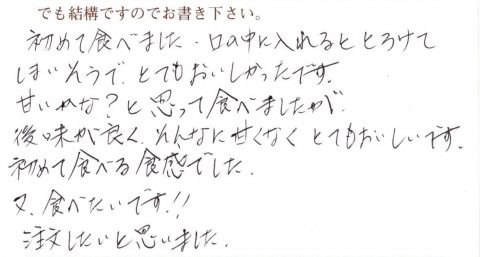 でも結構ですのでお書き下さい。
初めて食べました。口の中に入れるととろけて
しまいそうで、とてもおいしかったです。
甘いかな?と思って食べましたが、
後味が良く、そんなに甘くなく とてもおいしいです。
初めて食べる食感でした。
又、食べたいです!!
注文したいと思いました。